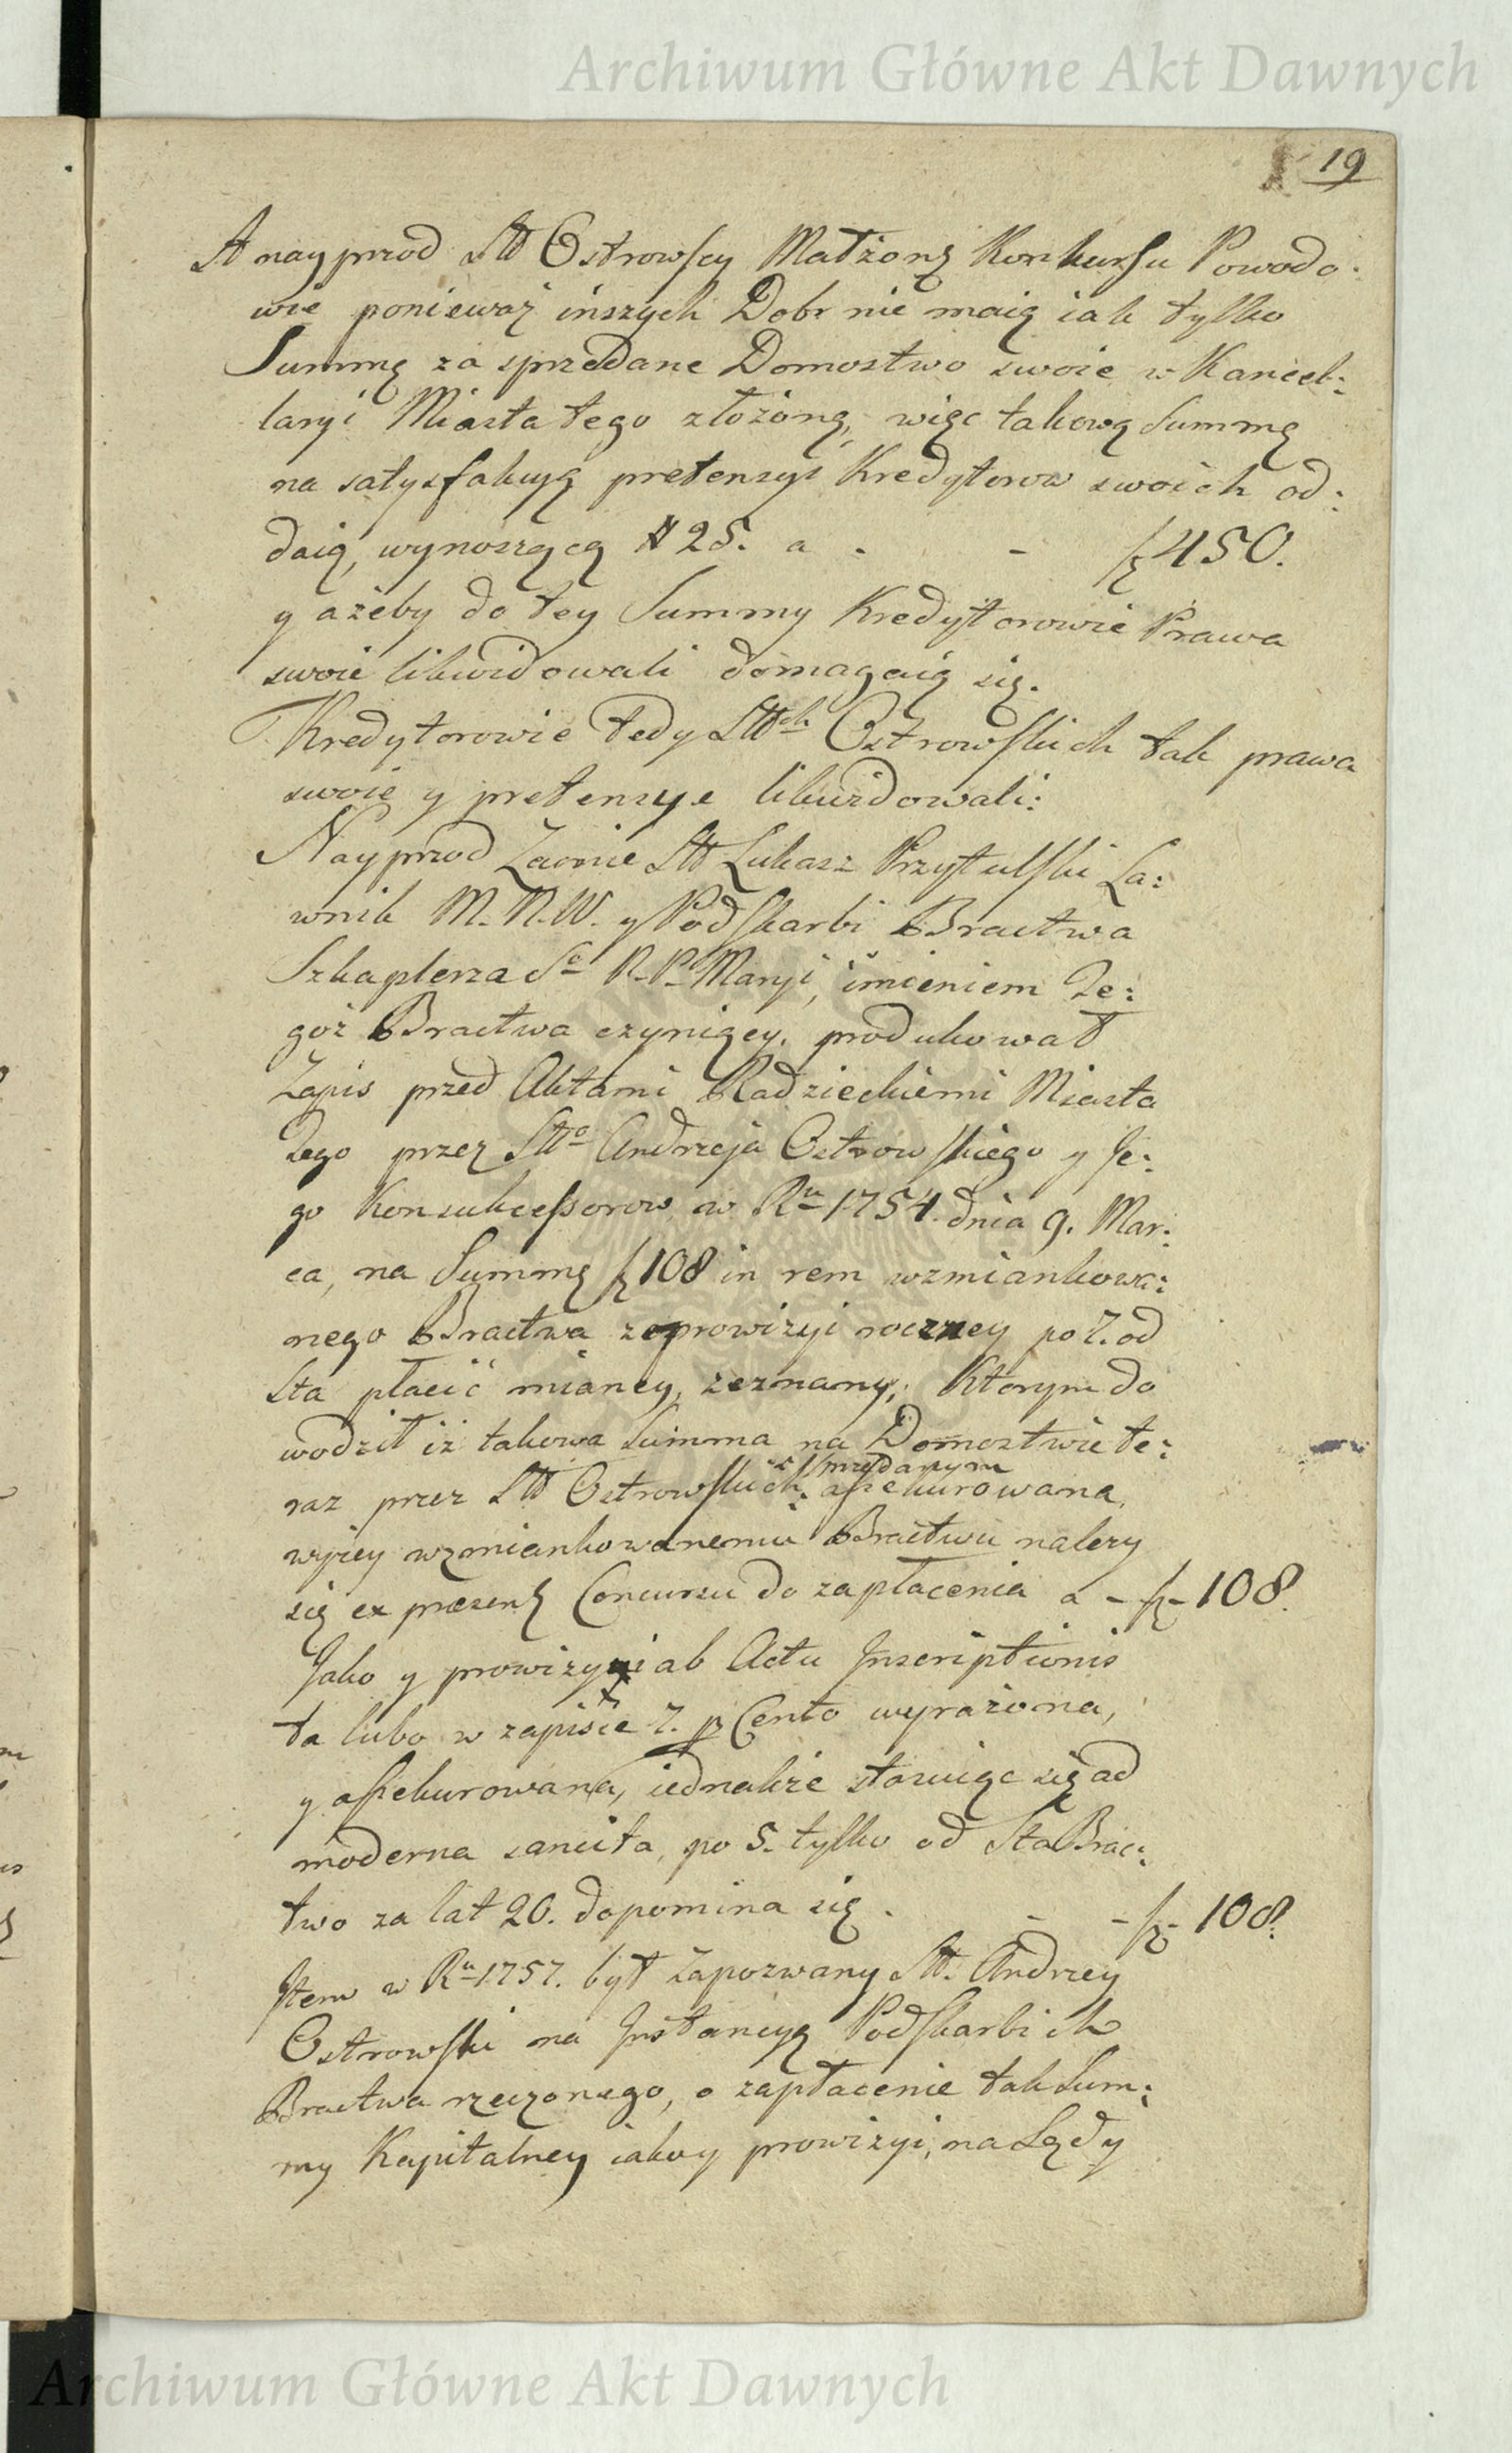 Archiwum Główne Akt Dawnych
19
A nayprzod Stt Ostrowscy Małżonk Konkursu Powodo:
wie ponieważ inszych Dobr nie maią iak tylko
Summę za sprzedane Domostwo swoie w Kancel:
laryi Miasta tego złożoną, więc takową Summę
na satysfakcyą pretensyi Kredytorow swoich od:
daią, wynoszącą # 25. a - - 450.
y ażeby do tey Summy Kredytorowie Prawa
swoie likwidowali domagaią się.
Kredytorowie tedy Stt ch Ostrowskich tak prawa
swoie y pretensye likwidowali:
Nayprzod Zacnie Stt Łukasz Przytulski Ła:
wnik M. N. W. y Podskarbi Bractwa
Szkaplerza So N. P. Maryi, imieniem Te:
goż Bractwa czyniący, produkował
Zapis przed Aktami Radzieckiemi Miasta
Tego przez Stto Andrzeja Ostrowskiego y Je:
go Konsukcessorow w Ru 1754. dnia 9. Mar:
ca, na Summę 108 in rem wzmiankowa:
nego Bractwa z prowizyi roczney po 7. od
Sta płacić mianey, zeznany; Ktorym do
wodził iż takowa Summa na Domostwie te:
sprzedanym
raz przez Stt Ostrowskich: assekurowana,
wyżey wzmiankowanemu Bractwu należy
się ex præsenti Concursu do zapłacenia a - 108.
Jako y prowizyi ab Actu Inscriptionis
ta lubo w zapisie 7. p Cento wyrażona,
y assekurowana, iednakże stosuiąc się ad
moderna sancita, po 5. tylko od Sta Brac:
two za lat 20. dopomina się - - - 108.
Item w Ru 1757. był Zapozwany Stt. Andrzey
Ostrowski na Instancyą Podskarbich
Bractwa rzeczonego, o zapłacenie tak Sum:
my Kapitalney iako y prowizyi, na Sądy
Archiwum Główne Akt Dawnych